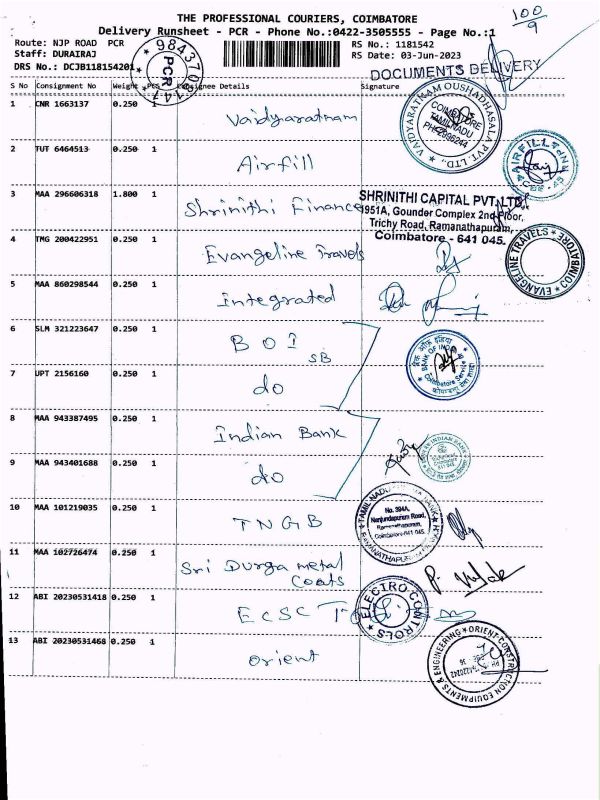 THE PROFESSIONAL COURIERS, COIMBATORE
100/9
Delivery Runsheet - PCR - Phone No.:0422-3505555 - Page No.:1
Route: NJP ROAD PCR
RS No.: 1181542
Staff: DURAIRAJ
RS Date: 03-Jun-2023
DRS No.: DCJB118154201
PCR
DOCUMENTS DELIVERY
S No Consignment No Weight Pcs Consignee Details Signature
1 CNR 1663137 0.250 Vaidyaratnam
VAIDYARATNAM OUSHADHASALA PVT. LTD.,
COIMBATORE
TAMILNADU
2 TUT 6464513 0.250 1 Airfill
3 MAA 296606318 1.800 1 Shrinithi Finance
SHRINITHI CAPITAL PVT. LTD.
1951A, Gounder Complex 2nd Floor,
Trichy Road, Ramanathapuram,
Coimbatore - 641 045.
4 TMG 200422951 0.250 1 Evangeline Travels
EVANGELINE TRAVELS COIMBATORE
5 MAA 860298544 0.250 1 Integrated
6 SLM 321223647 0.250 1 BOI
SB
BANK OF INDIA
7 UPT 2156160 0.250 1 do
8 MAA 943387495 0.250 1 Indian Bank
INDIAN BANK
9 MAA 943401688 0.250 1 do
10 MAA 101219035 0.250 1 TNGB
No. 394A,
Nanjundapuram Road,
Ramanathapuram,
Coimbatore-641 045.
11 MAA 102726474 0.250 1 Sri Durga metal
Coats
12 ABI 20230531418 0.250 1 ECSC
ELECTRO CONTROLS
13 ABI 20230531468 0.250 1 Orient
ORIENT CONSTRUCTION EQUIPMENTS & ENGINEERING